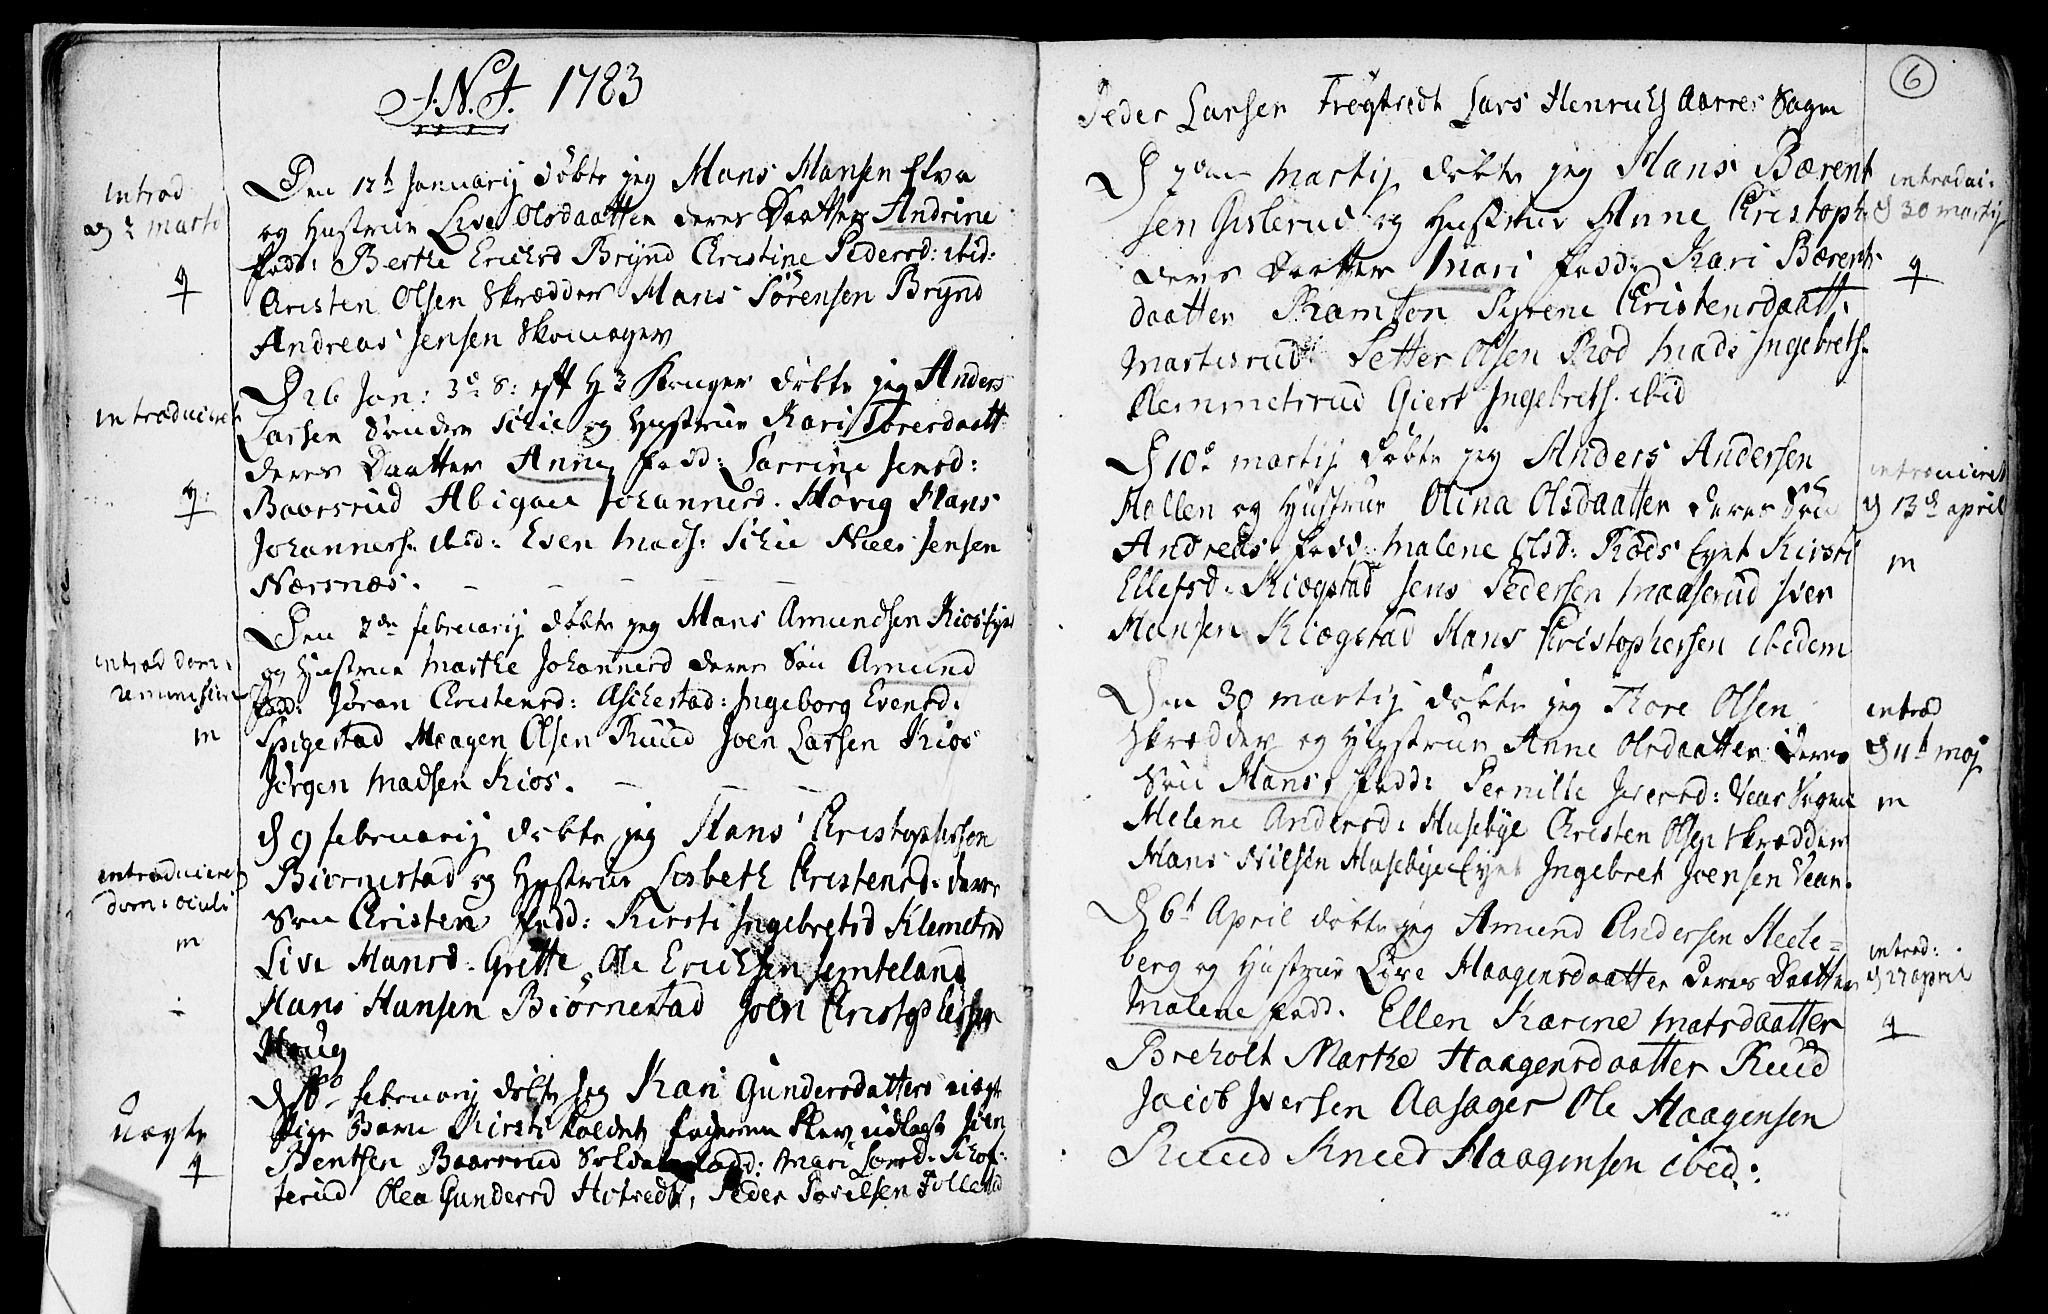 J.N.J. 1783
introd
d 2 marti
Den 12t Januarij döbte jeg Hans Hansen Elva
og Hustrue Live Olsdaatter deres Daatter Andrine
fadd: Berthe Erichsd Brynd Christine Pedersd: ibid:
Christen Olsen Skrædder Hans Sörensen Brynd
Andreas Jensen Skomager
introduceret
D 26 Jan: 3d S: eft H 3 Konger döbte jeg Anders
Larsen Söndre Schie og Hustrue Kari Torersdaatt
deres Daatter Anne fadd: Lorrine Jensd:
Baarsrud Abigael Johannesd. Hövig Hans
Johanness. ibid: Even Mads: Schie Niels Jensen
Nærsnæs.
introd dom:
reminiscere
m
Den 2den februarij döbte jeg Hans Amundsen Kios
og Hustrue Marthe Johannesd deres Sön Amund
fad: Jöran Christensd: Aschestad: Ingeborg Evensd:
Spigestad Haagen Olsen Ruud Joen Larsen Kios
Jörgen Madsen Kios.
introduceret
dom: oculi
m
d 9 februarij döbte jeg Hans Christophersen
Biörnestad og Hustrue Lisbeth Christensd: deres
Sön Christen fadd: Kirsti Ingebretsd Klemetsrud
Live Hansd. Grette Ole Erichsen Semteland
Hans Hansen Biörnestad Joen Christophersen
Haug
uægte
d 16 februarij döbte jeg Kari Gundersdatters uægte
Pige Barn Kirsti kaldet faderen blev udlagt Joen
Bentsen Baarsrud Soldat fadd: Mari Larsd. Schof-
terud Olea Gundersd Hotvedt, Peder Torilsen Follestad
6
Peder Larsen Trögstedt Lars Henrichs Aarres Sogn
introduc:
d 30 martij
D 7den Martij döbte jeg Hans Bærent
sen Gisterud og Hustrue Anne Christoph:
deres Daatter Mari fadd: Kari Bærents
daatter Ramton Syrene Christensdaatt:
Martisrud: Petter Olsen Röd Mads Ingebrets.
Clemmetsrud Giert Ingebrets. ibid
introduceret
d 13de april
m
D 10d martij döbte jeg Anders Andersen
Hallen og Hustrue Olina Olsdaatter deres Sön
Andreas. fadd: Malene Olsd: Röds Eyet Kirsti
Ellefsd: Kiøgstad Jens Pedersen Madserud Iver
Hansen Kiøgstad Hans Christophersen ibidem
introd
d 11t maj
m
Den 30 martij döbte jeg Tore Olsen
Skrædder og Hustrue Anne Olsdaatter deres
Sön Hans, fadd: Pernille Iversd: Vear Sogn
Helene Andersd: Husebye Christen Olsen Skrædder
Hans Nilsen Husebye Eyet Ingebret Joensen Vear.
introd:
d 27 april
D 6t April döbte jeg Amund Andersen Heele=
berg og Hustrue Live Haagensdaatter deres Daatter
Malene fadd. Ellen Karine Matsdaatter
Breholt Marthe Haagensdaatter Ruud
Jacob Iversen Aasager Ole Haagensen
Ruud Knud Haagensen ibid: